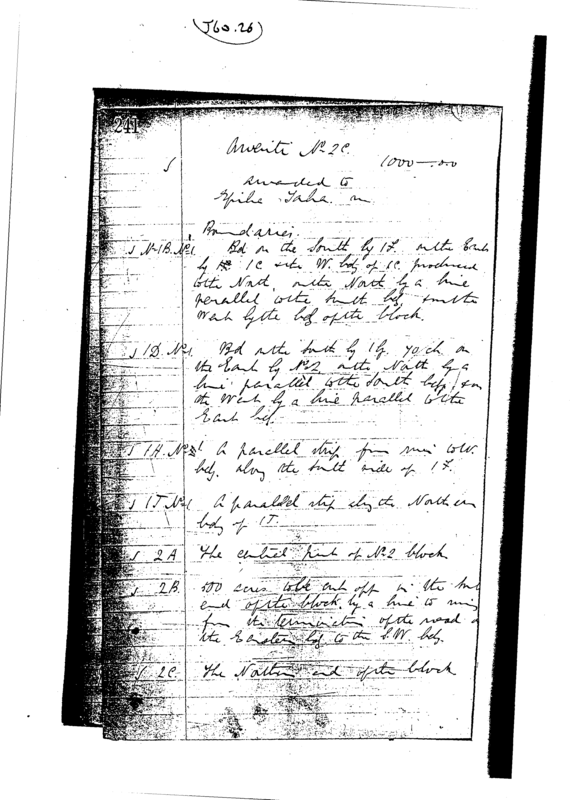 J60.26
241
Awarite No 2C.
1000-..00
awarded to
Boundaries.
No 1B. No 1 Bd on the South by 1F. on the East
by 1C & the W. bdy of 1C produced
to the North, on the North by a line
parallel to the South bdy, & on the
West by the bdy of the block.
1D. No 1. Bd on the South by 1G, 70 ch on
the East by No 2 on the North by a
line parallel to the South bdy & on
the West by a line parallel to the
East bdy.
1H. No 1 A parallel strip from to W.
bdy. along the South side of 1F.
1T No 1 A parallel strip along the Northern
bdy of 1T.
2A The central part of No 2 block
2B. 500 acres to be cut off in the
end of the block, by a line to
from the termination of the road
the Eastern bdy to the S.W. bdy.
2C. The Northern end of the block